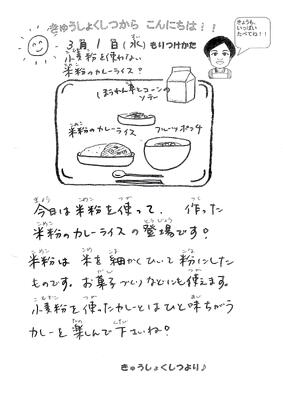 きゅうしょくしつから こんにちは!!
3月1日(水)もりつけかた
小麦粉を使わない
米粉のカレーライス?
きょうも、
いっぱい
たべてね!!
ほうれん草とコーンの
ソテー
米粉のカレーライス
フルーツポンチ
今日は米粉を使って、作った
米粉のカレーライスの登場です!
米粉は米を細かくひいて粉にした
ものです。お菓子づくりなどにも使えます。
小麦粉を使ったカレーとはひと味ちがう
カレーを楽しんで下さいね!
きゅうしょくしつより♪